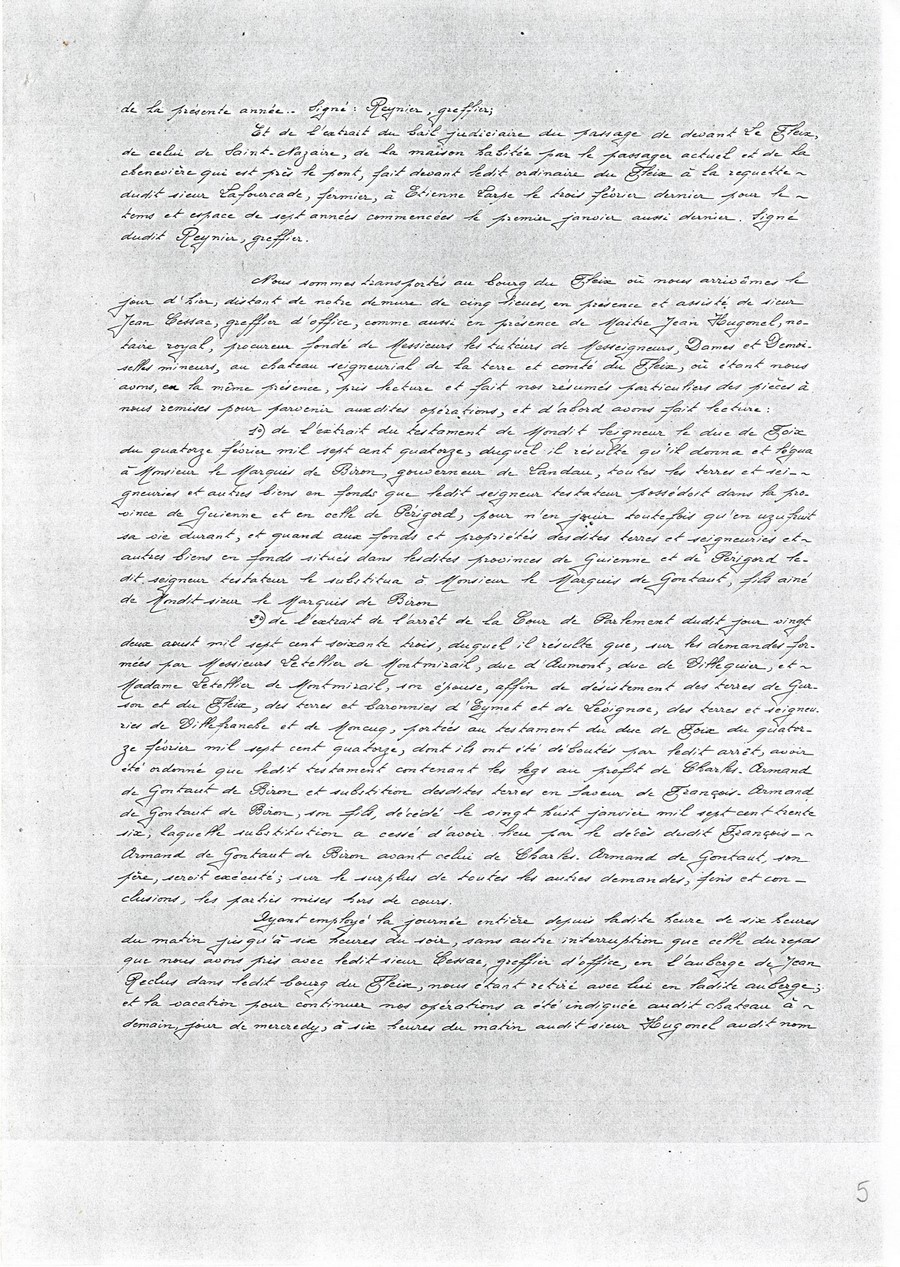 de la présente année.- Signé : Reynier, greffier;
Et de l'extrait du bail judiciaire du passage de devant Le Fleix,
de celui de Saint-Nazaire, de la maison habitée par le passager actuel et de la
chenevière qui est près le pont, fait devant ledit ordinaire du Fleix à la requette ~
dudit sieur Lafourcade, fermier, à Etienne Larpe le trois février dernier pour le ~
tems et espace de sept années commencées le premier janvier aussi dernier. Signé
dudit Reynier, greffier.
Nous sommes transportés au bourg du Fleix où nous arrivâmes le
jour d'hier, distant de notre demure de cinq lieues, en présence et assisté de sieur
Jean Cessac, greffier d'office, comme aussi en présence de Maitre Jean Hugonel, no-
taire royal, procureur fondé de Messieurs les tuteurs de Mosseigneurs, Dames et Demoi-
selles mineurs, au chateau seigneurial de la terre et comté du Fleix, où étant nous
avons, en la même présence, pris lecture et fait nos résumés particuliers des pièces à
nous remises pour parvenir auxdites opérations, et d'abord avons fait lecture :
1°) de l'extrait du testament de Mondit Seigneur le duc de Foix
du quatorze février mil sept cent quatorze, duquel il résulte qu'il donna et légua
à Monsieur le Marquis de Biron, gouverneur de Landau, toutes les terres et sei-~
gneuries et autres biens en fonds que ledit seigneur testateur possédoit dans la pro-
vince de Guienne et en celle de Périgord, pour n'en jouir toutefois qu'en uzufruit
sa vie durant, et quand aux fonds et propriétés desdites terres et seigneuries et ~
autres biens en fonds situés dans lesdites provinces de Guienne et de Périgord le-
dit seigneur testateur le substitua à Monsieur le Marquis de Gontaut, fils ainé
de Mondit sieur le Marquis de Biron
2°) de l'extrait de l'arrêt de la Cour de Parlement dudit jour vingt
deux aoust mil sept cent soixante trois, duquel il résulte que, sur les demandes for-
mées par Messieurs Letellier de Montmirail, duc d'Aumont, duc de Villequier, et ~
Madame Letellier de Montmirail, son épouse, affin de désistement des terres de Gur-
son et du Fleix, des terres et baronnies d'Eymet et de Lévignac, des terres et seigneu-
ries de Villefranche et de Moncuq, portées au testament du duc de Foix du quator-
ze février mil sept cent quatorze, dont ils ont été déboutés par ledit arrêt, avoir
été ordonné que ledit testament contenant les legs au profit de Charles-Armand
de Gontaut de Biron et substition desdites terres en faveur de François-Armand
de Gontaut de Biron, son fils, décédé le vingt huit janvier mil sept cent trente
six; laquelle substitution a cessé d'avoir lieu par le décès dudit François-~
Armand de Gontaut de Biron avant celui de Charles-Armand de Gontaut, son
père, seroit exécuté; sur le surplus de toutes les autres demandes, fins et con-
clusions, les parties mises hors de cours.
Ayant employé la journée entière depuis ladite heure de six heures
du matin jusqu'à six heures du soir, sans autre interruption que celle du repas
que nous avons pris avec ledit sieur Cessac, greffier d'office, en l'auberge de Jean
Reclus dans ledit bourg du Fleix, nous étant retiré avec lui en ladite auberge;
et la vacation pour continuer nos opérations a été indiquée audit chateau à ~
demain, jour de mercredy, à six heures du matin audit sieur Hugonel audit nom
5